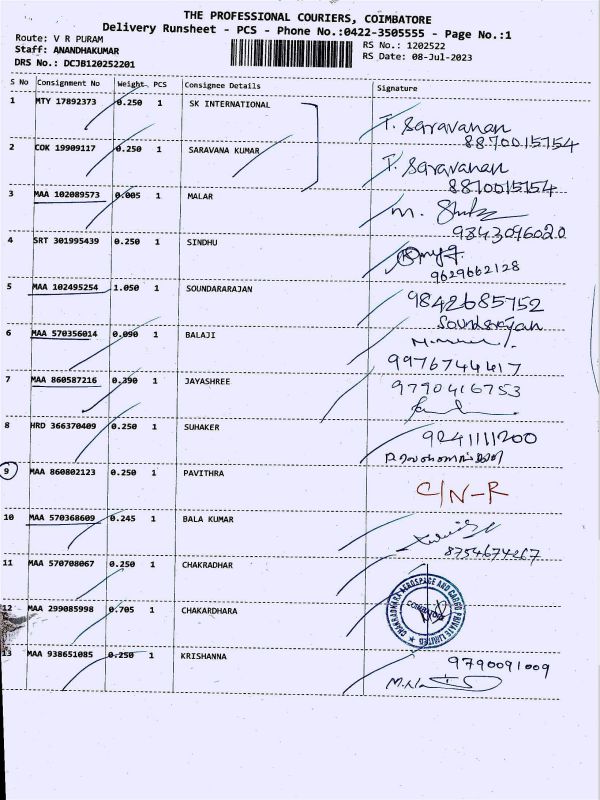 THE PROFESSIONAL COURIERS, COIMBATORE
Delivery Runsheet - PCS - Phone No.:0422-3505555 - Page No.:1
Route: V R PURAM
RS No.: 1202522
Staff: ANANDHAKUMAR
RS Date: 08-Jul-2023
DRS No.: DCJB120252201
S No Consignment No Weight PCS Consignee Details Signature
1 MTY 17892373 0.250 1 SK INTERNATIONAL
T. Saravanan
8870015154
2 COK 19909117 0.250 1 SARAVANA KUMAR
T. Saravanan
8870015154
3 MAA 102089573 0.005 1 MALAR
9843096020
4 SRT 301995439 0.250 1 SINDHU
9629662128
5 MAA 102495254 1.050 1 SOUNDARARAJAN
9842685752
Soundarajan
6 MAA 570356014 0.090 1 BALAJI
9976744417
7 MAA 860587216 0.390 1 JAYASHREE
9790416753
8 HRD 366370409 0.250 1 SUHAKER
9241111200
9 MAA 860802123 0.250 1 PAVITHRA
C/N-R
10 MAA 570368609 0.245 1 BALA KUMAR
8754674267
11 MAA 570708067 0.250 1 CHAKRADHAR
CHAKRADHARA AEROSPACE AND CARGO PRIVATE LIMITED
COIMBATORE
12 MAA 299085998 0.705 1 CHAKARDHARA
13 MAA 938651085 0.250 1 KRISHANNA
9790091009